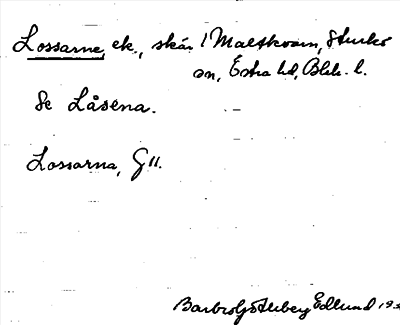 Lossarne, ek., skär i Maltkvarn, Sturkö
sn, Östra hd, Blek. l.
Se Låsena.
Lossarna, G 11.
Barbro Götberg Edlund 19